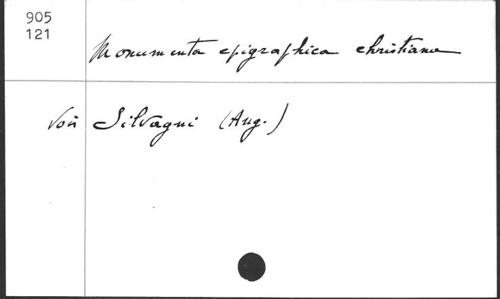 905
121
Monumenta epigraphica christiana
Voir Silvagni (Aug.)